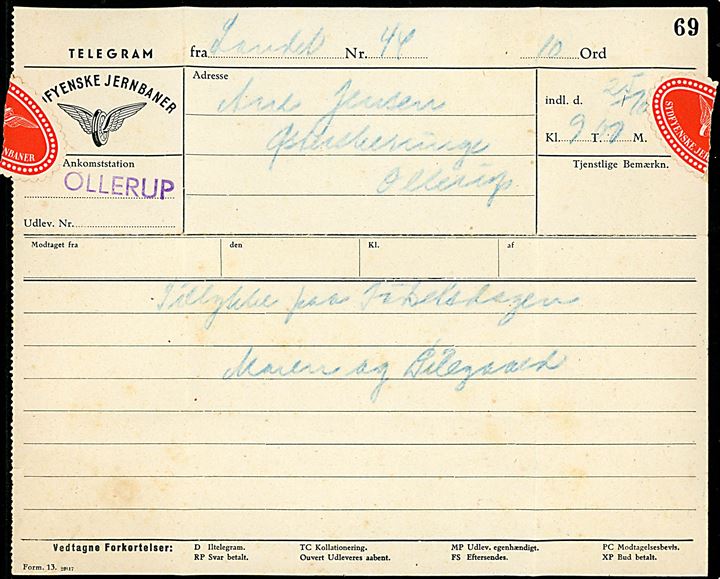 69
TELEGRAM fra Landet Nr. 44 10 Ord
FYENSKE JERNBANER
Adresse
Jensen
Ollerup
indl. d. 25/10
Kl. 9 00 T. M.
Tjenstlige Bemærkn.
NBANER
SYDFYENSKE JER
Ankomststation
OLLERUP
Udlev. Nr.
Modtaget fra den Kl. af
Tillykke paa Fødselsdagen
Maren og
Vedtagne Forkortelser: D Iltelegram. TC Kollationering. MP Udlev. egenhændigt. PC Modtagelsesbevis.
RP Svar betalt. Ouvert Udleveres aabent. FS Eftersendes. XP Bud betalt.
Form. 13.